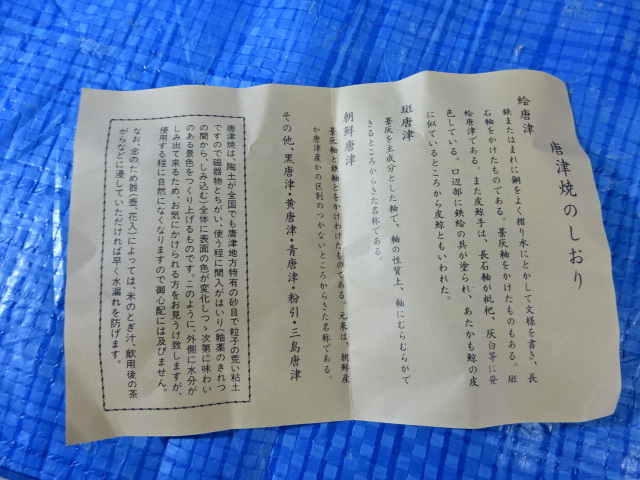 唐津焼のしおり
絵唐津
鉄またはまれに銅をよく摺り水にとかして文様を書き、長
石釉をかけたものである。藁灰釉をかけたものもある。斑
絵唐津である。また皮鯨手は、長石釉が枇杷、灰白等に発
色している。口辺部に鉄絵の具が塗られ、あたかも鯨の皮
に似ているところから皮鯨ともいわれた。
斑唐津
藁灰を主成分とした釉で、釉の性質上、釉にむらむらがで
きるところからきた名称である。
朝鮮唐津
藁灰釉と鉄釉とをかけわけたものである。元来は、朝鮮産
か唐津産かの区別のつかないところからきた名称である。
その他、黒唐津・黄唐津・青唐津・粉引・三島唐津
唐津焼は、陶土が全国でも唐津地方特有の砂目で粒子の荒い粘土
ですので磁器物とちがい、使う程に間入がはいり(釉薬のきれつ
の間から、しみ込む)全体に表面の色が変化しつゝ次第に味わい
のある景色をつくり上げるものです。このように、外側に水分が
しみ出て来るため、お気にかけられる方をお見うけ致しますが、
使用する程に自然になくなりますので御心配には及びません。
なお、念のため器(壺、花入)によっては、米のとぎ汁、飲用後の茶
がらなどに浸していただければ早く水漏れを防げます。